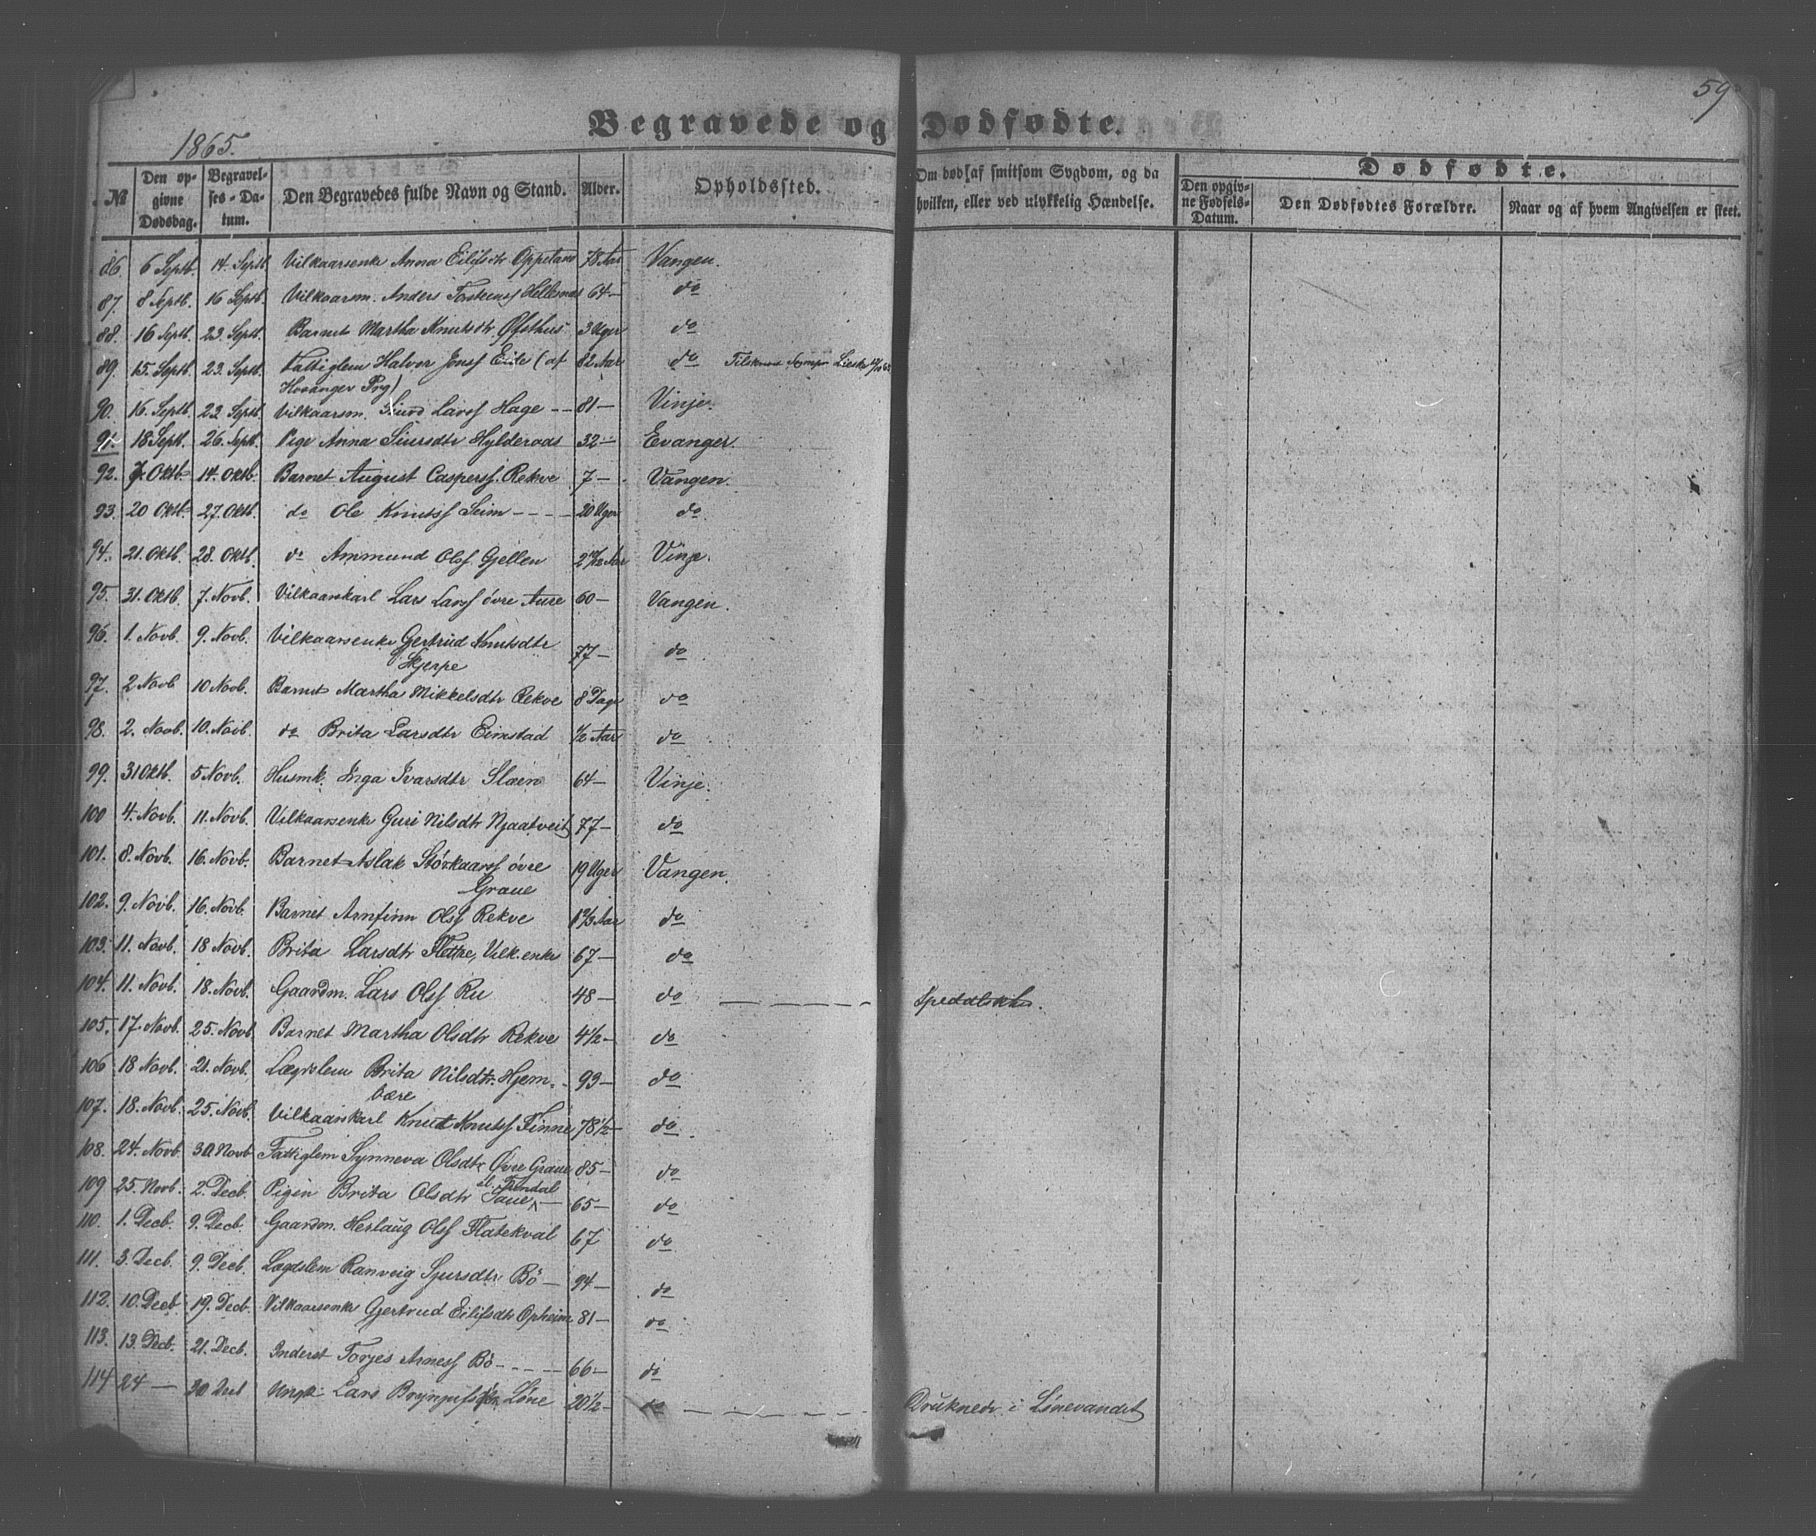 59
Begravede og Dødfødte.
1865.
№ Den opgivne Dødsdag. Begravelses-Datum. Den Begravedes fulde Navn og Stand. Alder. Opholdssted. Om død af smitsom Sygdom, og da hvilken, eller ved ulykkelig Hændelse. Dødfødte. Den opgivne Fødsels-Datum. Den Dødfødtes Forældre. Naar og af hvem Angivelsen er skeet.
86. 6 Septb. 14. Septb Vilkaarsenke Anna Eilifsdtr Oppeland 78 Aar Vangen.
87. 8 Septb. 16 Septb. Vilkaarsm. Anders Torsteinss Hellesnes 64 — do
88. 16 Septb. 23. Septb. Barnet Martha Knutsdtr Øfsthus 3 Uger do
89. 15. Septb. 23. Septb. Fattiglem Halvor Jonss Eide (af 82 Aar do
Hosanger Prg)
90. 16. Septb. 23. Septb Vilkaarsm. Larss Hage -- 81 — Vinje.
91. 18 Septb. 26. Septb. Pige Anna Siursdtr Hylderaas 32 — Evanger.
92. 7 Oktb. 14. Oktb. Barnet August Casperss. Rekve 7 — Vangen.
93. 20 Oktb. 27. Oktb. do Ole Knutss Seim ---- 20 Uger do.
94. 21. Oktb. 28. Oktb. do Ammund Olss Gjellen Aar Vinje.
95. 31. Oktb. 7. Novb. Vilkaarskarl Lars Larss øvre Aure 60 — Vangen.
96. 1. Novb. 9. Novb. Vilkaarsenke Gertrud Knutsdtr
Skjerpe 77 — do
97. 2 Novb 10 Novb. Barnet Martha Mikkelsdtr Rekve 8 Dage do
98. 2. Novb. 10. Novb. do Brita Larsdtr Eimstad 1/2 Aar do
99. 31 Oktb. 5 Novb. Husmk. Inga Ivarsdtr Slæen 64 — Vinje.
100 4. Novb. 11. Novb. Vilkaarsenke Guri Nilsdtr Njaatveit 77 — do
101. 8. Novb. 16. Novb. Barnet Aslak Størkaarss øvre 19 Uger Vangen.
Graue
102. 9. Novb. 16. Novb. Barnet Arnfinn Olss Rekve 1 2/3 Aar do
103. 11. Novb. 18 Novb. Brita Larsdtr Flettre, Vilk.enke 67 — do
104. 11. Novb. 18. Novb. Gaardm. Lars Olss Ru 48 — do — — — — Spedalskh.
105. 17. Novb. 25. Novb Barnet Martha Olsdtr Rekve 4 1/2 — do
106 18 Novb. 21. Novb. Lægdslem Brita Nilsdtr. Hjem- 93 — do
bære
107. 18. Novb. 25. Novb. Vilkaarskarl Knut Knutss Finne 78 1/2 — do.
108. 24. Novb. 30. Novb Fattiglem Synneva Olsdtr Øvre Graue 85 — do
109 25. Novb. 2. Decb. Pigen Brita Olsdtr Saue 65 — do
110. 1. Decb. 9. Decb Gaardm. Herlaug Olss Flatekval 67 do
111. 3. Decb. 9. Decb. Lægdslem Ranveig Sjursdtr Bø — 94 — do
112. 10. Decb. 19. Decb. Vilkaarsenke Gjertrud Eilifsdtr Opheim 81 — do
113. 13. Decb. 21. Decb. Inderst Torjes Arness Bø ----- 66 — do
114 24 — 30 Decb Ungk. Lars Brynjulfs Løne 20 1/2 — do — — — — Druknede i Lønevandet